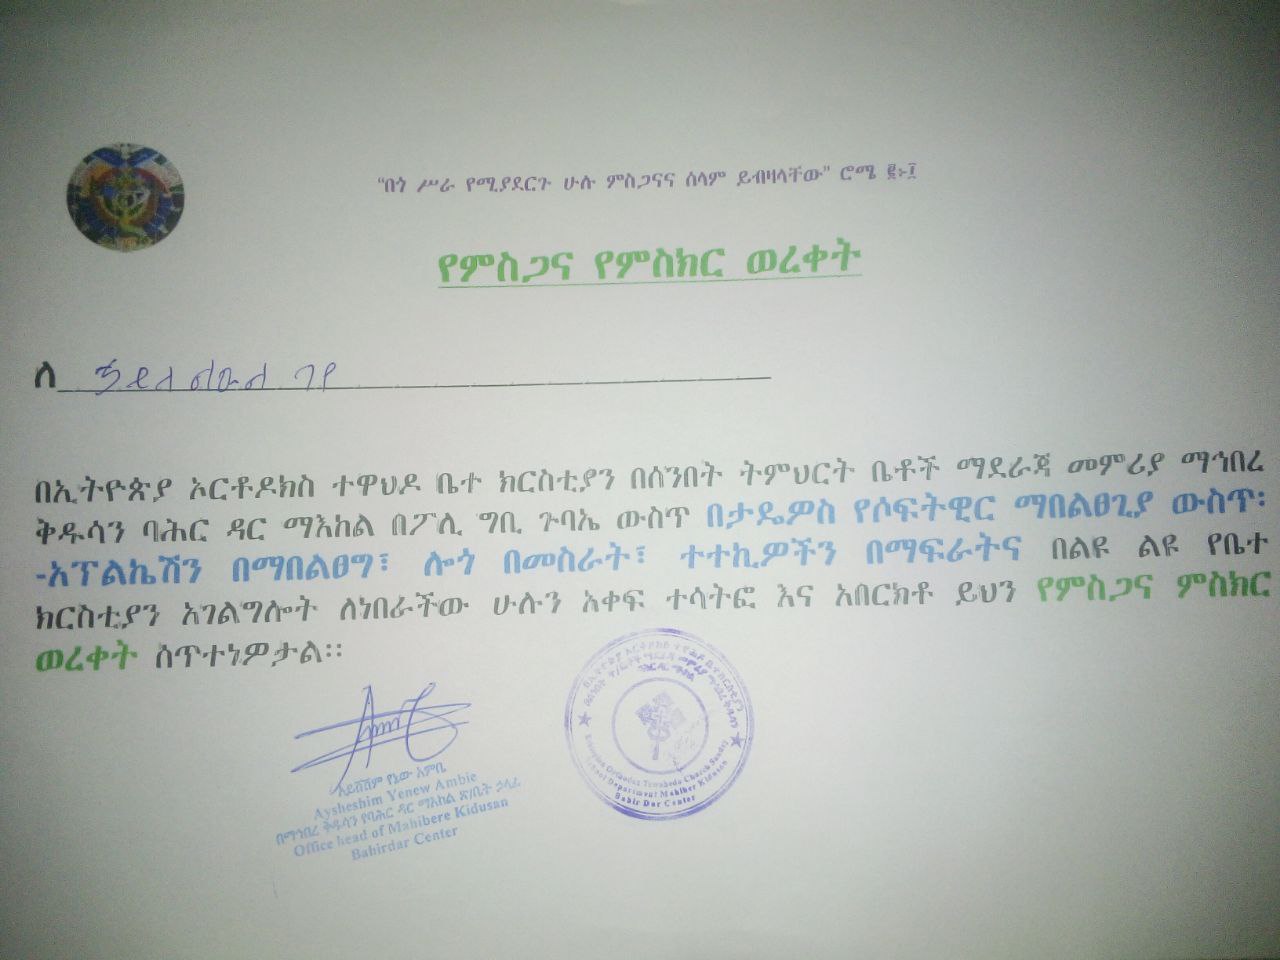 “በጎ ሥራ የሚያደርጉ ሁሉ ምስጋናና ሰላም ይብዛላቸው” ሮሜ ፪፡፲
የምስጋና የምስክር ወረቀት
ለ
በኢትዮጵያ ኦርቶዶክስ ተዋህዶ ቤተ ክርስቲያን በሰንበት ትምህርት ቤቶች ማደራጃ መምሪያ ማኅበረ
ቅዱሳን ባሕር ዳር ማእከል በፖሊ ግቢ ጉባኤ ውስጥ በታዴዎስ የሶፍትዊር ማበልፀጊያ ውስጥ፡
-አፕልኬሽን በማበልፀግ፣ ሎጎ በመስራት፣ ተተኪዎችን በማፍራትና በልዩ ልዩ የቤተ
ክርስቲያን አገልግሎት ለነበራችው ሁሉን አቀፍ ተሳትፎ እና አበርክቶ ይህን የምስጋና ምስክር
ወረቀት ሰጥተነዎታል፡፡
አይሸሽም የኔው አምቢ
Aysheshim Yenew Ambie
በማኅበረ ቅዱሳን የባሕር ዳር ማእከል ጽ/ቤት ኃላፊ
Office head of Mahibere Kidusan
Bahirdar Center
Ethiopian Orthodox Tewahedo Church Sunday
School Department Mahiber Kidusan
Bahir Dar Center